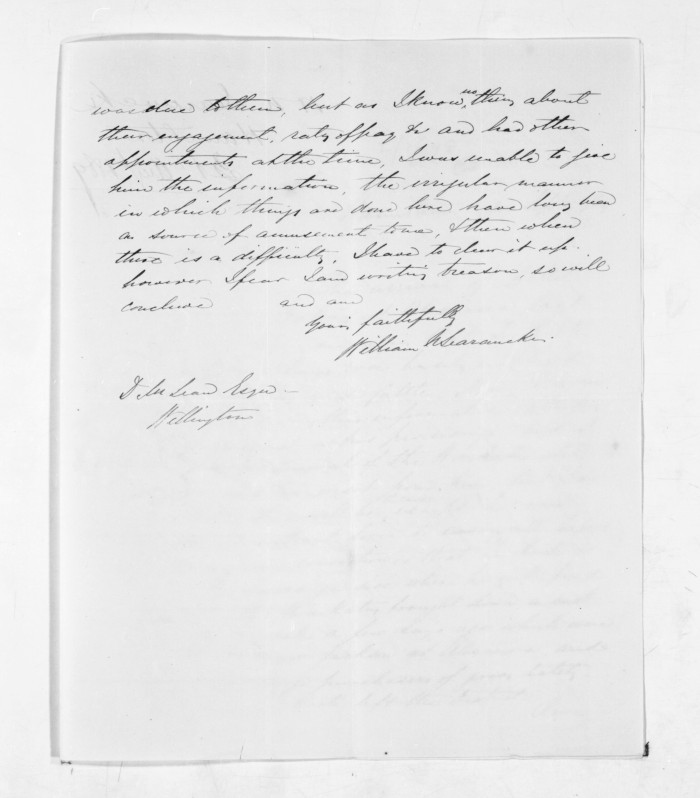 was due to them, but as I know nothing about
their engagement, rate of pay &c and had other
appointments at the time, I was unable to give
him the information, the irregular manner
in which things are done here have long been
a source of amusement to me, & then when
there is a difficulty, I have to clear it up.
however I fear I am writing treason, so will
conclude and am
Yours faithfully
William N Searancke.
D McLean Esqre
Wellington